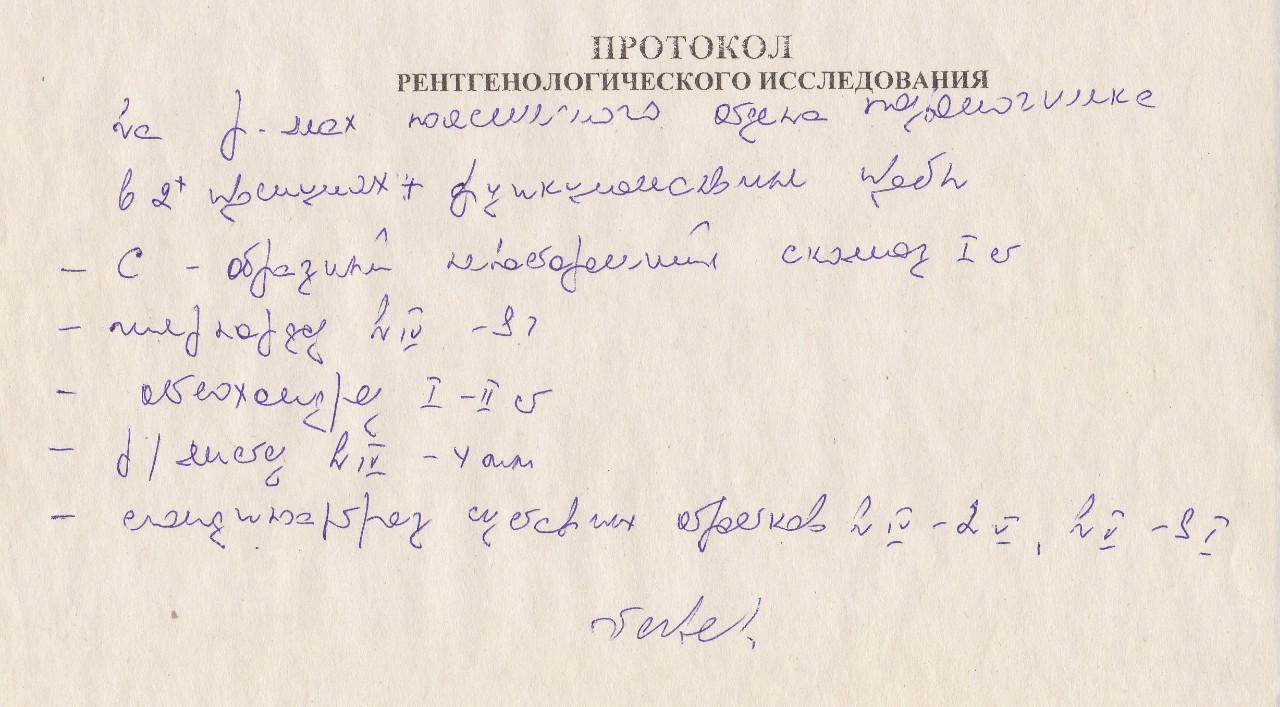 ПРОТОКОЛ
РЕНТГЕНОЛОГИЧЕСКОГО ИССЛЕДОВАНИЯ
на р-мах поясничного отдела позвоночника
в 2х проекциях + функциональные пробы
- С - образный левосторонний сколиоз I ст
- LIV - S1
- остеохондроз I - II ст
- р/листез LIV - 4 мм
- спондилоартроз суставных отростков LIV - LV, LV - SI